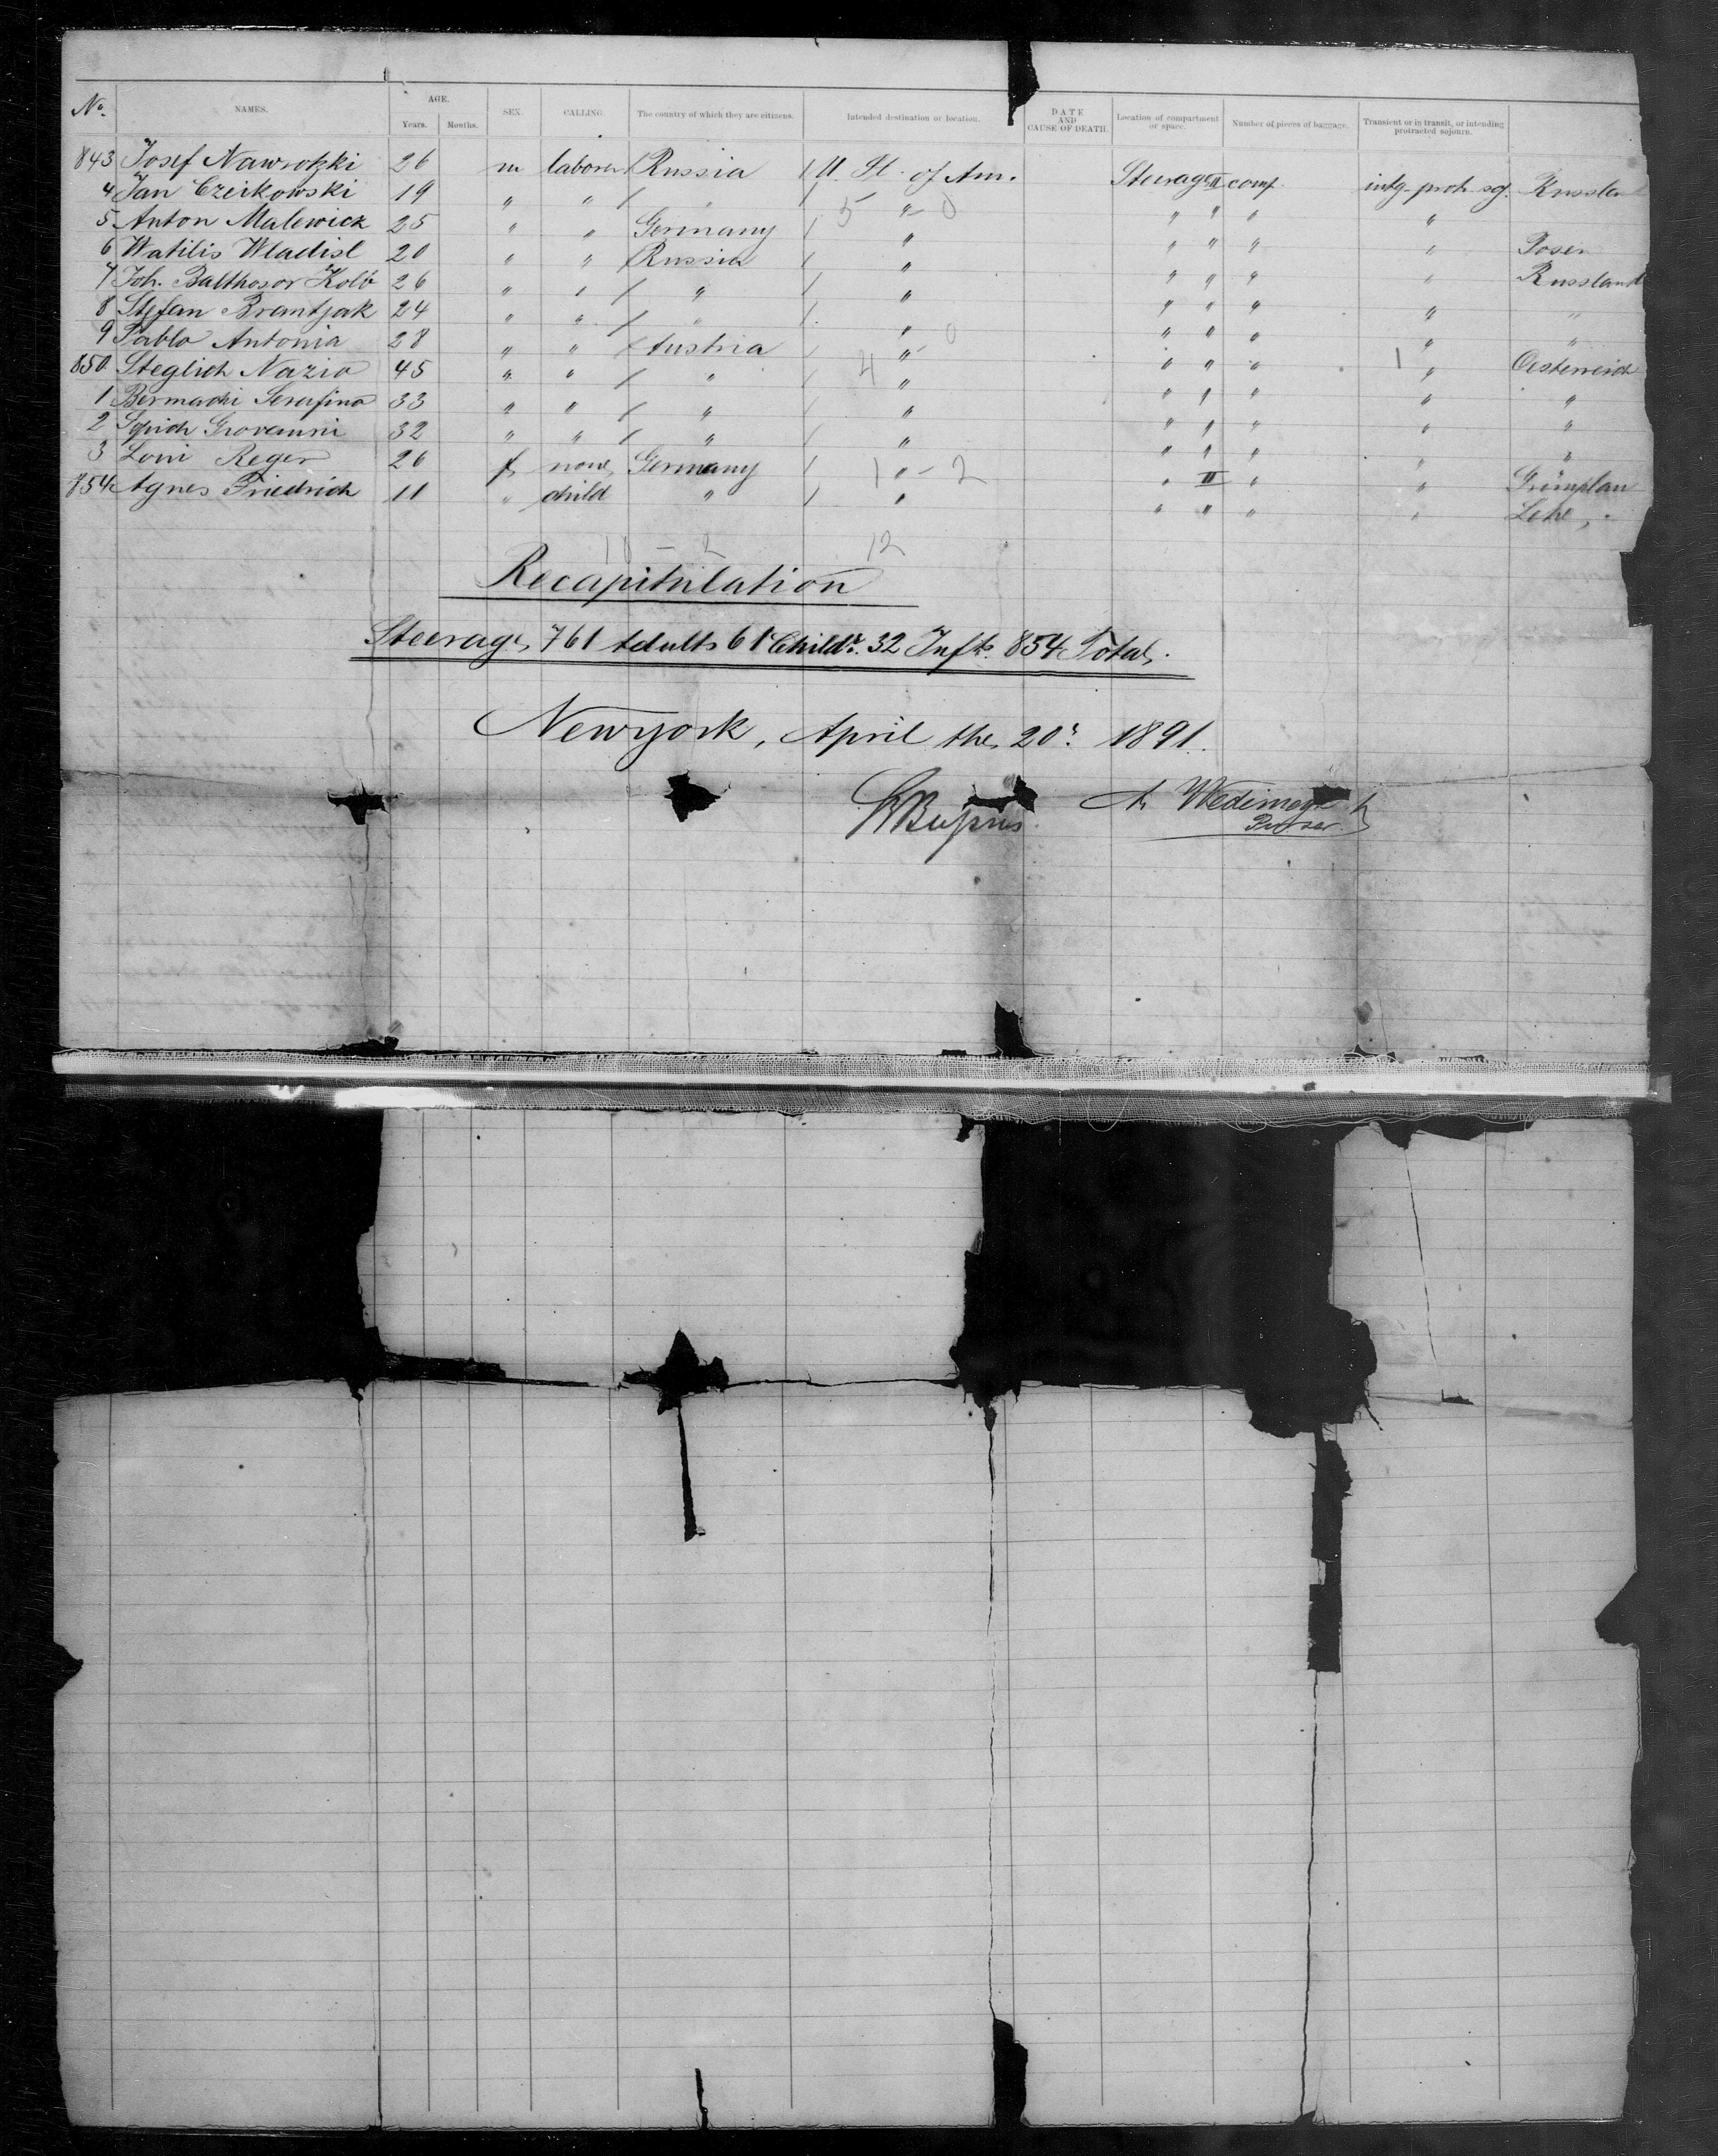 No. NAMES. AGE. Years. Months. SEX. CALLING. The country of which they are citizens. Intended destination or location. DATE AND CAUSE OF DEATH. Location of compartment or space. Number of pieces of baggage. Transient or in transit, or intending protracted sojourn.
843 Josef Nawrotzki 26 m laborer Russia U. St. of Am. Steerage II comp. intg. protr. soj. Russland
4 Jan Czeikowski 19 " " " " " " " "
5 Anton Malewicz 25 " " Germany " " " " " Posen
6 Watilis Wladisl 20 " " Russia " " " " " Russland
7 Joh. Balthosor Kolb 26 " " " " " " " " "
8 Stefan Brantjak 24 " " " " " " " " "
9 Pablo Antonia 28 " " Austria " " " " " Oesterreich
850 Steglich Nazio 45 " " " " " " " " "
1 Bermachi Serafino 33 " " " " " " " " "
2 Giovanni 32 " " " " " " " " "
3 Loui Reger 26 f none Germany " " III " "
854 Agnes Friedrich 11 " child " " " " " " Lehe,
10 - 2 12
Recapitulation
Steerage, 761 Adults 61 Childr. 32 Infts. 854 Total.
Newyork, April the 20. 1891.
A. Wedimeyer
Purser.